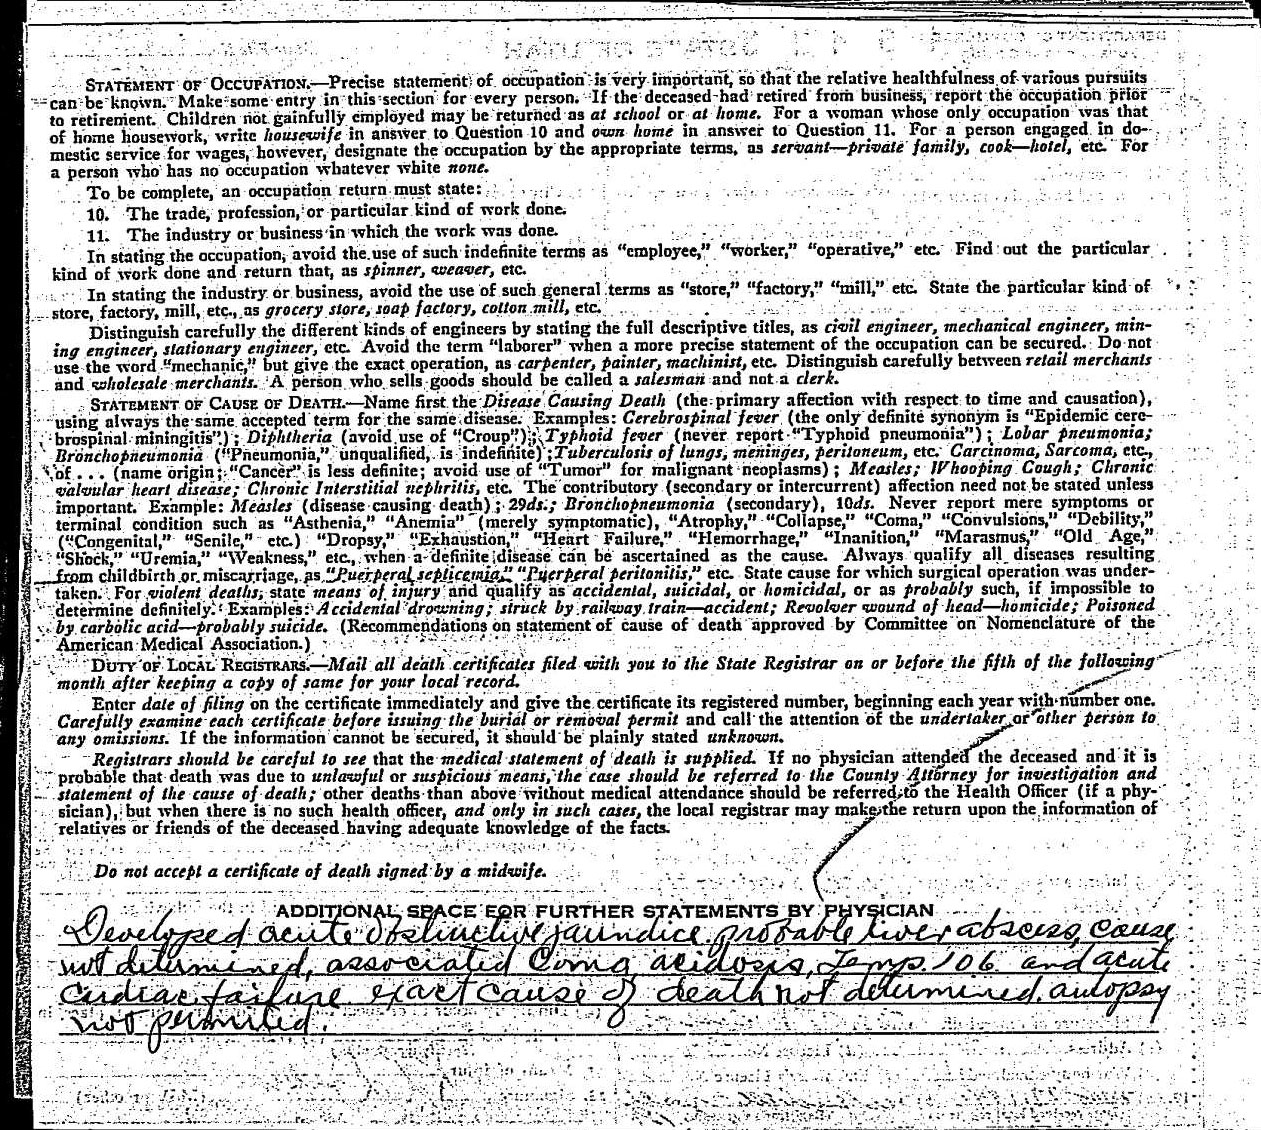 STATEMENT OF OCCUPATION.—Precise statement of occupation is very important, so that the relative healthfulness of various pursuits
can be known. Make some entry in this section for every person. If the deceased had retired from business, report the occupation prior
to retirement. Children not gainfully employed may be returned as at school or at home. For a woman whose only occupation was that
of home housework, write housewife in answer to Question 10 and own home in answer to Question 11. For a person engaged in do-
mestic service for wages, however, designate the occupation by the appropriate terms, as servant—private family, cook—hotel, etc. For
a person who has no occupation whatever white none.
To be complete, an occupation return must state:
10. The trade, profession, or particular kind of work done.
11. The industry or business in which the work was done.
In stating the occupation, avoid the use of such indefinite terms as "employee," "worker," "operative," etc. Find out the particular
kind of work done and return that, as spinner, weaver, etc.
In stating the industry or business, avoid the use of such general terms as "store," "factory," "mill," etc. State the particular kind of
store, factory, mill, etc., as grocery store, soap factory, cotton mill, etc.
Distinguish carefully the different kinds of engineers by stating the full descriptive titles, as civil engineer, mechanical engineer, min-
ing engineer, stationary engineer, etc. Avoid the term "laborer" when a more precise statement of the occupation can be secured. Do not
use the word "mechanic," but give the exact operation, as carpenter, painter, machinist, etc. Distinguish carefully between retail merchants
and wholesale merchants. A person who sells goods should be called a salesman and not a clerk.
STATEMENT OF CAUSE OF DEATH.—Name first the Disease Causing Death (the primary affection with respect to time and causation),
using always the same accepted term for the same disease. Examples: Cerebrospinal fever (the only definite synonym is "Epidemic cere-
brospinal miningitis"); Diphtheria (avoid use of "Croup"); Typhoid fever (never report "Typhoid pneumonia"); Lobar pneumonia;
Bronchopneumonia ("Pneumonia," unqualified, is indefinite); Tuberculosis of lungs, meninges, peritoneum, etc. Carcinoma, Sarcoma, etc.,
of . . . (name origin; "Cancer" is less definite; avoid use of "Tumor" for malignant neoplasms); Measles; Whooping Cough; Chronic
valvular heart disease; Chronic Interstitial nephritis, etc. The contributory (secondary or intercurrent) affection need not be stated unless
important. Example: Measles (disease causing death); 29ds.; Bronchopneumonia (secondary), 10ds. Never report mere symptoms or
terminal condition such as "Asthenia," "Anemia" (merely symptomatic), "Atrophy," "Collapse," "Coma," "Convulsions," "Debility,"
("Congenital," "Senile," etc.) "Dropsy," "Exhaustion," "Heart Failure," "Hemorrhage," "Inanition," "Marasmus," "Old Age,"
"Shock," "Uremia," "Weakness," etc., when a definite disease can be ascertained as the cause. Always qualify all diseases resulting
from childbirth or miscarriage, as "Puerperal septicemia," "Puerperal peritonitis," etc. State cause for which surgical operation was under-
taken. For violent deaths, state means of injury and qualify as accidental, suicidal, or homicidal, or as probably such, if impossible to
determine definitely. Examples: Accidental drowning; struck by railway train—accident; Revolver wound of head—homicide; Poisoned
by carbolic acid—probably suicide. (Recommendations on statement of cause of death approved by Committee on Nomenclature of the
American Medical Association.)
DUTY OF LOCAL REGISTRARS.—Mail all death certificates filed with you to the State Registrar on or before the fifth of the following
month after keeping a copy of same for your local record.
Enter date of filing on the certificate immediately and give the certificate its registered number, beginning each year with number one.
Carefully examine each certificate before issuing the burial or removal permit and call the attention of the undertaker or other person to
any omissions. If the information cannot be secured, it should be plainly stated unknown.
Registrars should be careful to see that the medical statement of death is supplied. If no physician attended the deceased and it is
probable that death was due to unlawful or suspicious means, the case should be referred to the County Attorney for investigation and
statement of the cause of death; other deaths than above without medical attendance should be referred to the Health Officer (if a phy-
sician), but when there is no such health officer, and only in such cases, the local registrar may make the return upon the information of
relatives or friends of the deceased having adequate knowledge of the facts.
Do not accept a certificate of death signed by a midwife.
ADDITIONAL SPACE FOR FURTHER STATEMENTS BY PHYSICIAN
Developed acute obstinctive jaundice, probable liver abscess, cause
not determined, associated Coma, acidosis, Temp. 106 and acute
Cardiac failure exact cause of death not determined. autopsy
not permited.